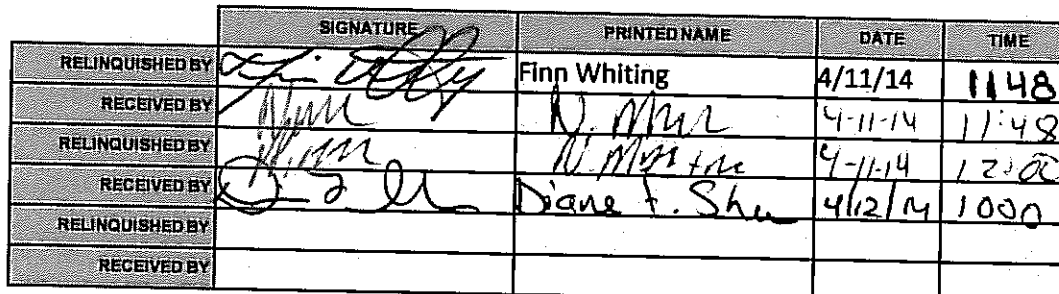 SIGNATURE PRINTED NAME DATE TIME
RELINQUISHED BY Finn Whiting 4/11/14 1148
RECEIVED BY N. 4-11-14 11:48
RELINQUISHED BY N. 4-11-14 12:00
RECEIVED BY Diane F. 4/12/14 1000
RELINQUISHED BY
RECEIVED BY